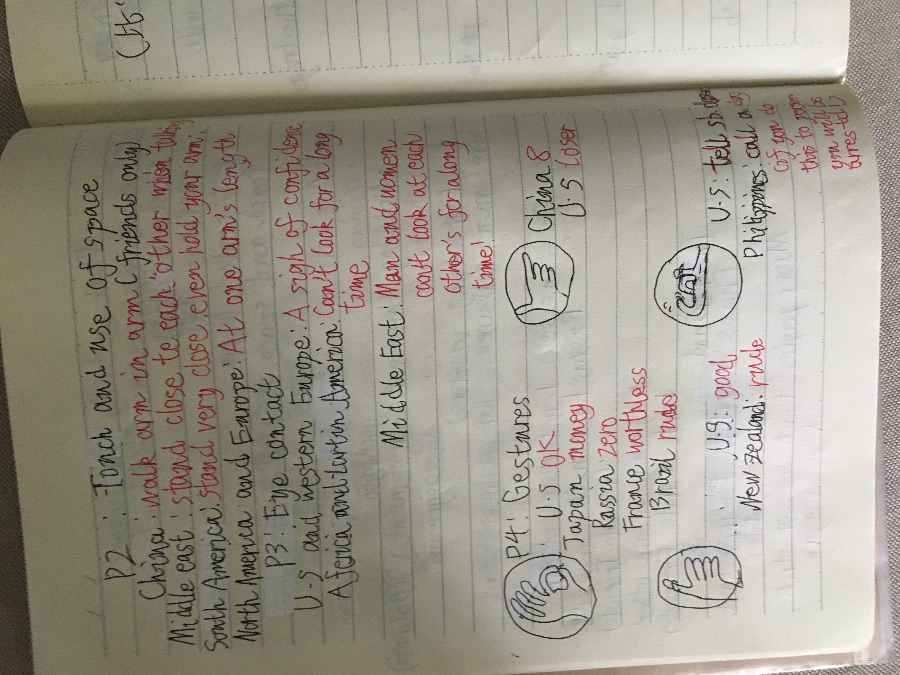 P2 : Touch and use of space
China: walk arm in arm (friends only)
Middle east : stand close to each other when talking
South America: stand very close, even hold your arm.
North America and Europe: At one arm's length
P3: Eye contact
U-S and western Europe: A sigh of confidence
Africa and Lartin America: Can't look for a long
time
Middle East: Man and women
can't look at each
other's for a long
time!
P4: Gestures
U-S OK
Japan money
Russia zero
France worthless
Brazil rude
China 8
U.S loser
U.S: good
New Zealand: rude
U-S: tell sb
Philippines: call a dog
(if you do
this to
you will be
arrested)
(It